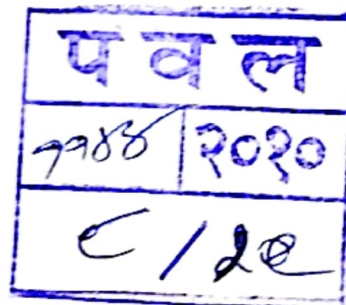 प व ल
११४४ २०२०
८/२९